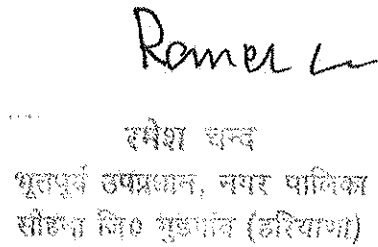 Ramesh
रमेश चन्द
भूतपूर्व उपप्रधान, नगर पालिका
सोहना जि० गुड़गांव (हरियाणा)